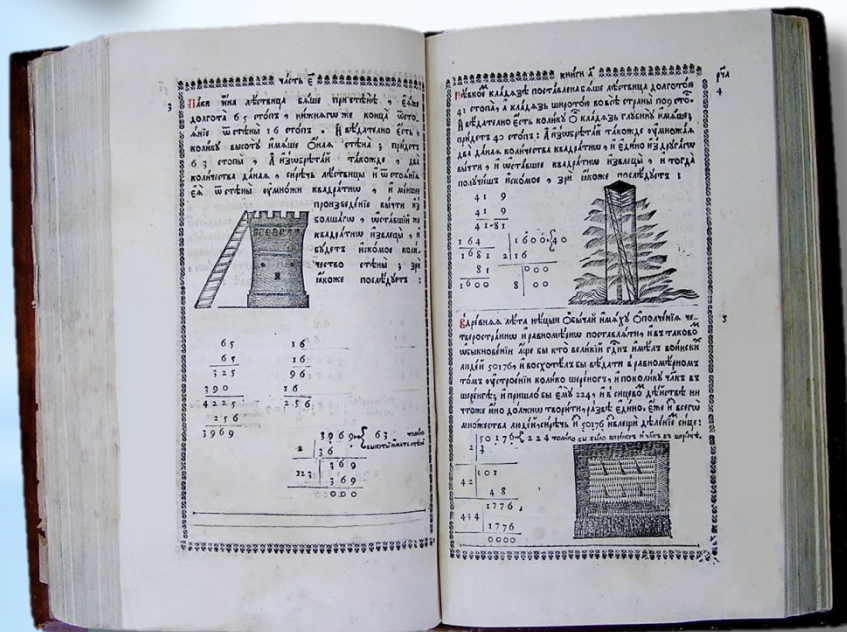 часть є҃
3
Паки ина лѣствица бяше при стѣнѣ, єяже
долгота 65 стопъ, нижняѡ же конца ѿсто-
янїе ѿ стѣны 16 стопъ. И вѣдателно єсть,
колику высоту имяше оная стѣна; прїидетъ
63 стопы, а изѡбрѣтай такожде, два
количества даная, сирѣчь лѣствицы и ѿстоянїя
єя ѿ стѣны оумножи квадратнѡ, и меншее
произведенїе вычти из
болшагѡ, ѡставшїй же
квадратнѡ извлецы, и
будетъ искомое коли-
чество стѣны; зри
якоже послѣдуетъ:
65 16
65 16
325 96
390 16
4225 256
256
3969
3969 { 63 толико
высоты имать стѣна
2 36
369
123 369
000
книги а҃
рча
4
Нѣкоемъ кладязѣ поставлена бяше лѣствица долготою
41 стопа, а кладязь широтою во всѣ страны по 9 стопъ
И вѣдателно єсть колику о кладязь глубину имяше;
прїидетъ 40 стопъ: А изѡбрѣтай такожде оумножая
два даная количества квадратнѡ, и єдино из другагѡ
вычти, и ѡставшее квадратнѡ извлецы, и тогда
получишъ искомое, зри якоже послѣдуетъ:
41 9
41 9
41 81
164 1600 { 40
1681 2 16
81 000
1600 8 00
5
Въ древняя лѣта нѣцыи обычай имяху ополченїя че-
твеространнѡ и равномѣрнѡ поставляти, и въ таковомъ
ѡбыкновенїи аще бы кто великїй гднъ имѣлъ воински
людей 50176, и восхотѣлъ бы вѣдати в равномѣрномъ
томъ оустроенїи колико шеренгъ, и поколику члкъ въ
шеренгѣ; и пришло бы єму 224, и в сицевомъ дѣйствѣ ни
чтоже ино должни творити, развѣ єдино, єже и всегѡ
множества людей, сирѣчь и 50176 извлещи дѣленїе сице:
50176 { 224 толико бы было шеренгъ и члкъ въ шеренгѣ.
2 4
101
42
48
1776
444 1776
0000